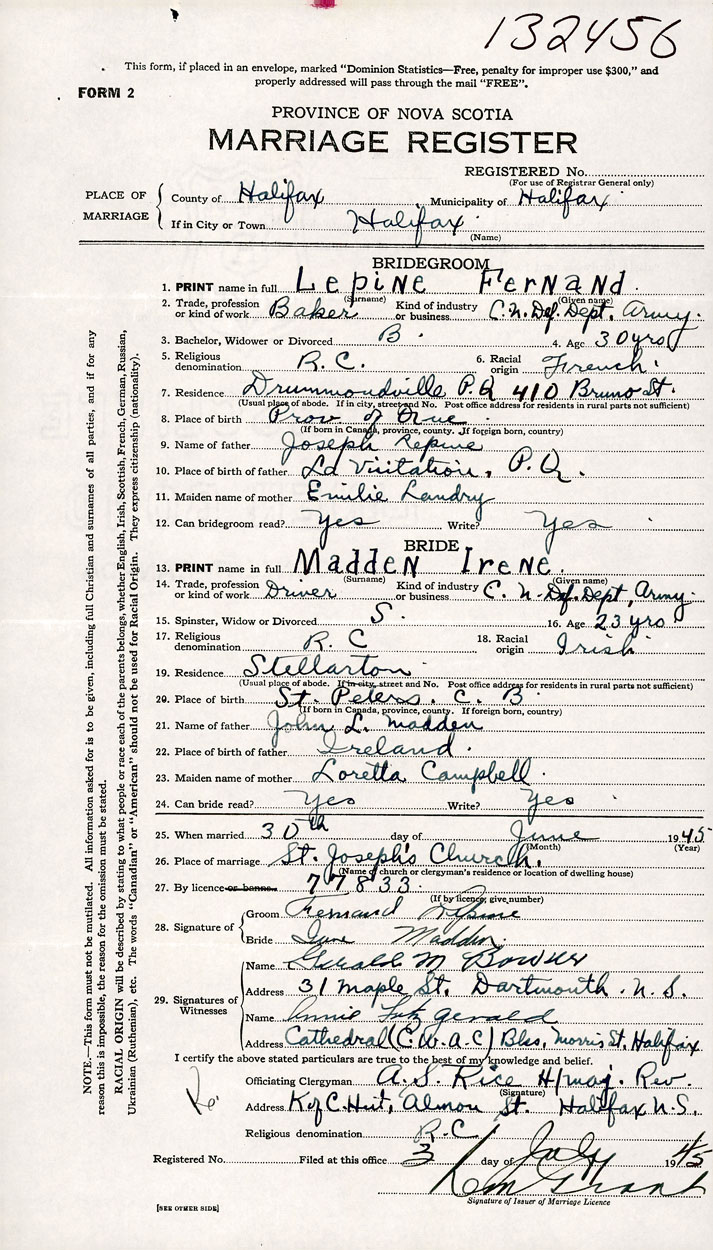 132456
This form, if placed in an envelope, marked "Dominion Statistics—Free, penalty for improper use $300," and
properly addressed will pass through the mail "FREE".
FORM 2
PROVINCE OF NOVA SCOTIA
MARRIAGE REGISTER
REGISTERED No.
(For use of Registrar General only)
PLACE OF MARRIAGE
County of Halifax Municipality of Halifax
If in City or Town Halifax
(Name)
BRIDEGROOM
1. PRINT name in full Lepine Fernand
(Surname) (Given name)
2. Trade, profession or kind of work Baker Kind of industry or business C. N. Def. Dept. Army.
3. Bachelor, Widower or Divorced B. 4. Age 30 yrs
5. Religious denomination R.C. 6. Racial origin French.
7. Residence Drummondville P.Q 410 Bruno St.
(Usual place of abode. If in city, street and No. Post office address for residents in rural parts not sufficient)
8. Place of birth Prov of Que
(If born in Canada, province, county. If foreign born, country)
9. Name of father Joseph Lepine
10. Place of birth of father La Visitation, P.Q.
11. Maiden name of mother Emilie Landry
12. Can bridegroom read? Yes Write? Yes
BRIDE
13. PRINT name in full Madden Irene.
(Surname) (Given name)
14. Trade, profession or kind of work Driver Kind of industry or business C. N. Df. Dept, Army.
15. Spinster, Widow or Divorced S. 16. Age 23 yrs
17. Religious denomination R. C 18. Racial origin Irish
19. Residence Stellarton
(Usual place of abode. If in city, street and No. Post office address for residents in rural parts not sufficient)
20. Place of birth St. Peters. C. B
(If born in Canada, province, county. If foreign born, country)
21. Name of father John L. Madden
22. Place of birth of father Ireland.
23. Maiden name of mother Loretta Campbell.
24. Can bride read? Yes Write? Yes
25. When married 30th day of June 1945
(Month) (Year)
26. Place of marriage St. Joseph's Church.
(Name of church or clergyman's residence or location of dwelling house)
27. By licence or banns 77833.
(If by licence, give number)
28. Signature of
Groom Fernand Lepine
Bride Irene Madden.
29. Signatures of Witnesses
Name Gerald M Bowser
Address 31 Maple St. Dartmouth. N. S.
Name Annie Fitzgerald
Address Cathedral (C.W.A.C) Bks, Morris St. Halifax
I certify the above stated particulars are true to the best of my knowledge and belief.
Officiating Clergyman A. S. Rice H/maj. Rev.
(Signature)
Address K of C. Hut, Almon St. Halifax N.S.
Religious denomination R.C
Registered No. Filed at this office 3 day of July 1945
Signature of Issuer of Marriage Licence
[SEE OTHER SIDE]
NOTE.—This form must not be mutilated. All information asked for is to be given, including full Christian and surnames of all parties, and if for any
reason this is impossible, the reason for the omission must be stated.
RACIAL ORIGIN will be described by stating to what people or race each of the parents belongs, whether English, Irish, Scottish, French, German, Russian,
Ukrainian (Ruthenian), etc. The words "Canadian" or "American" should not be used for Racial Origin. They express citizenship (nationality).